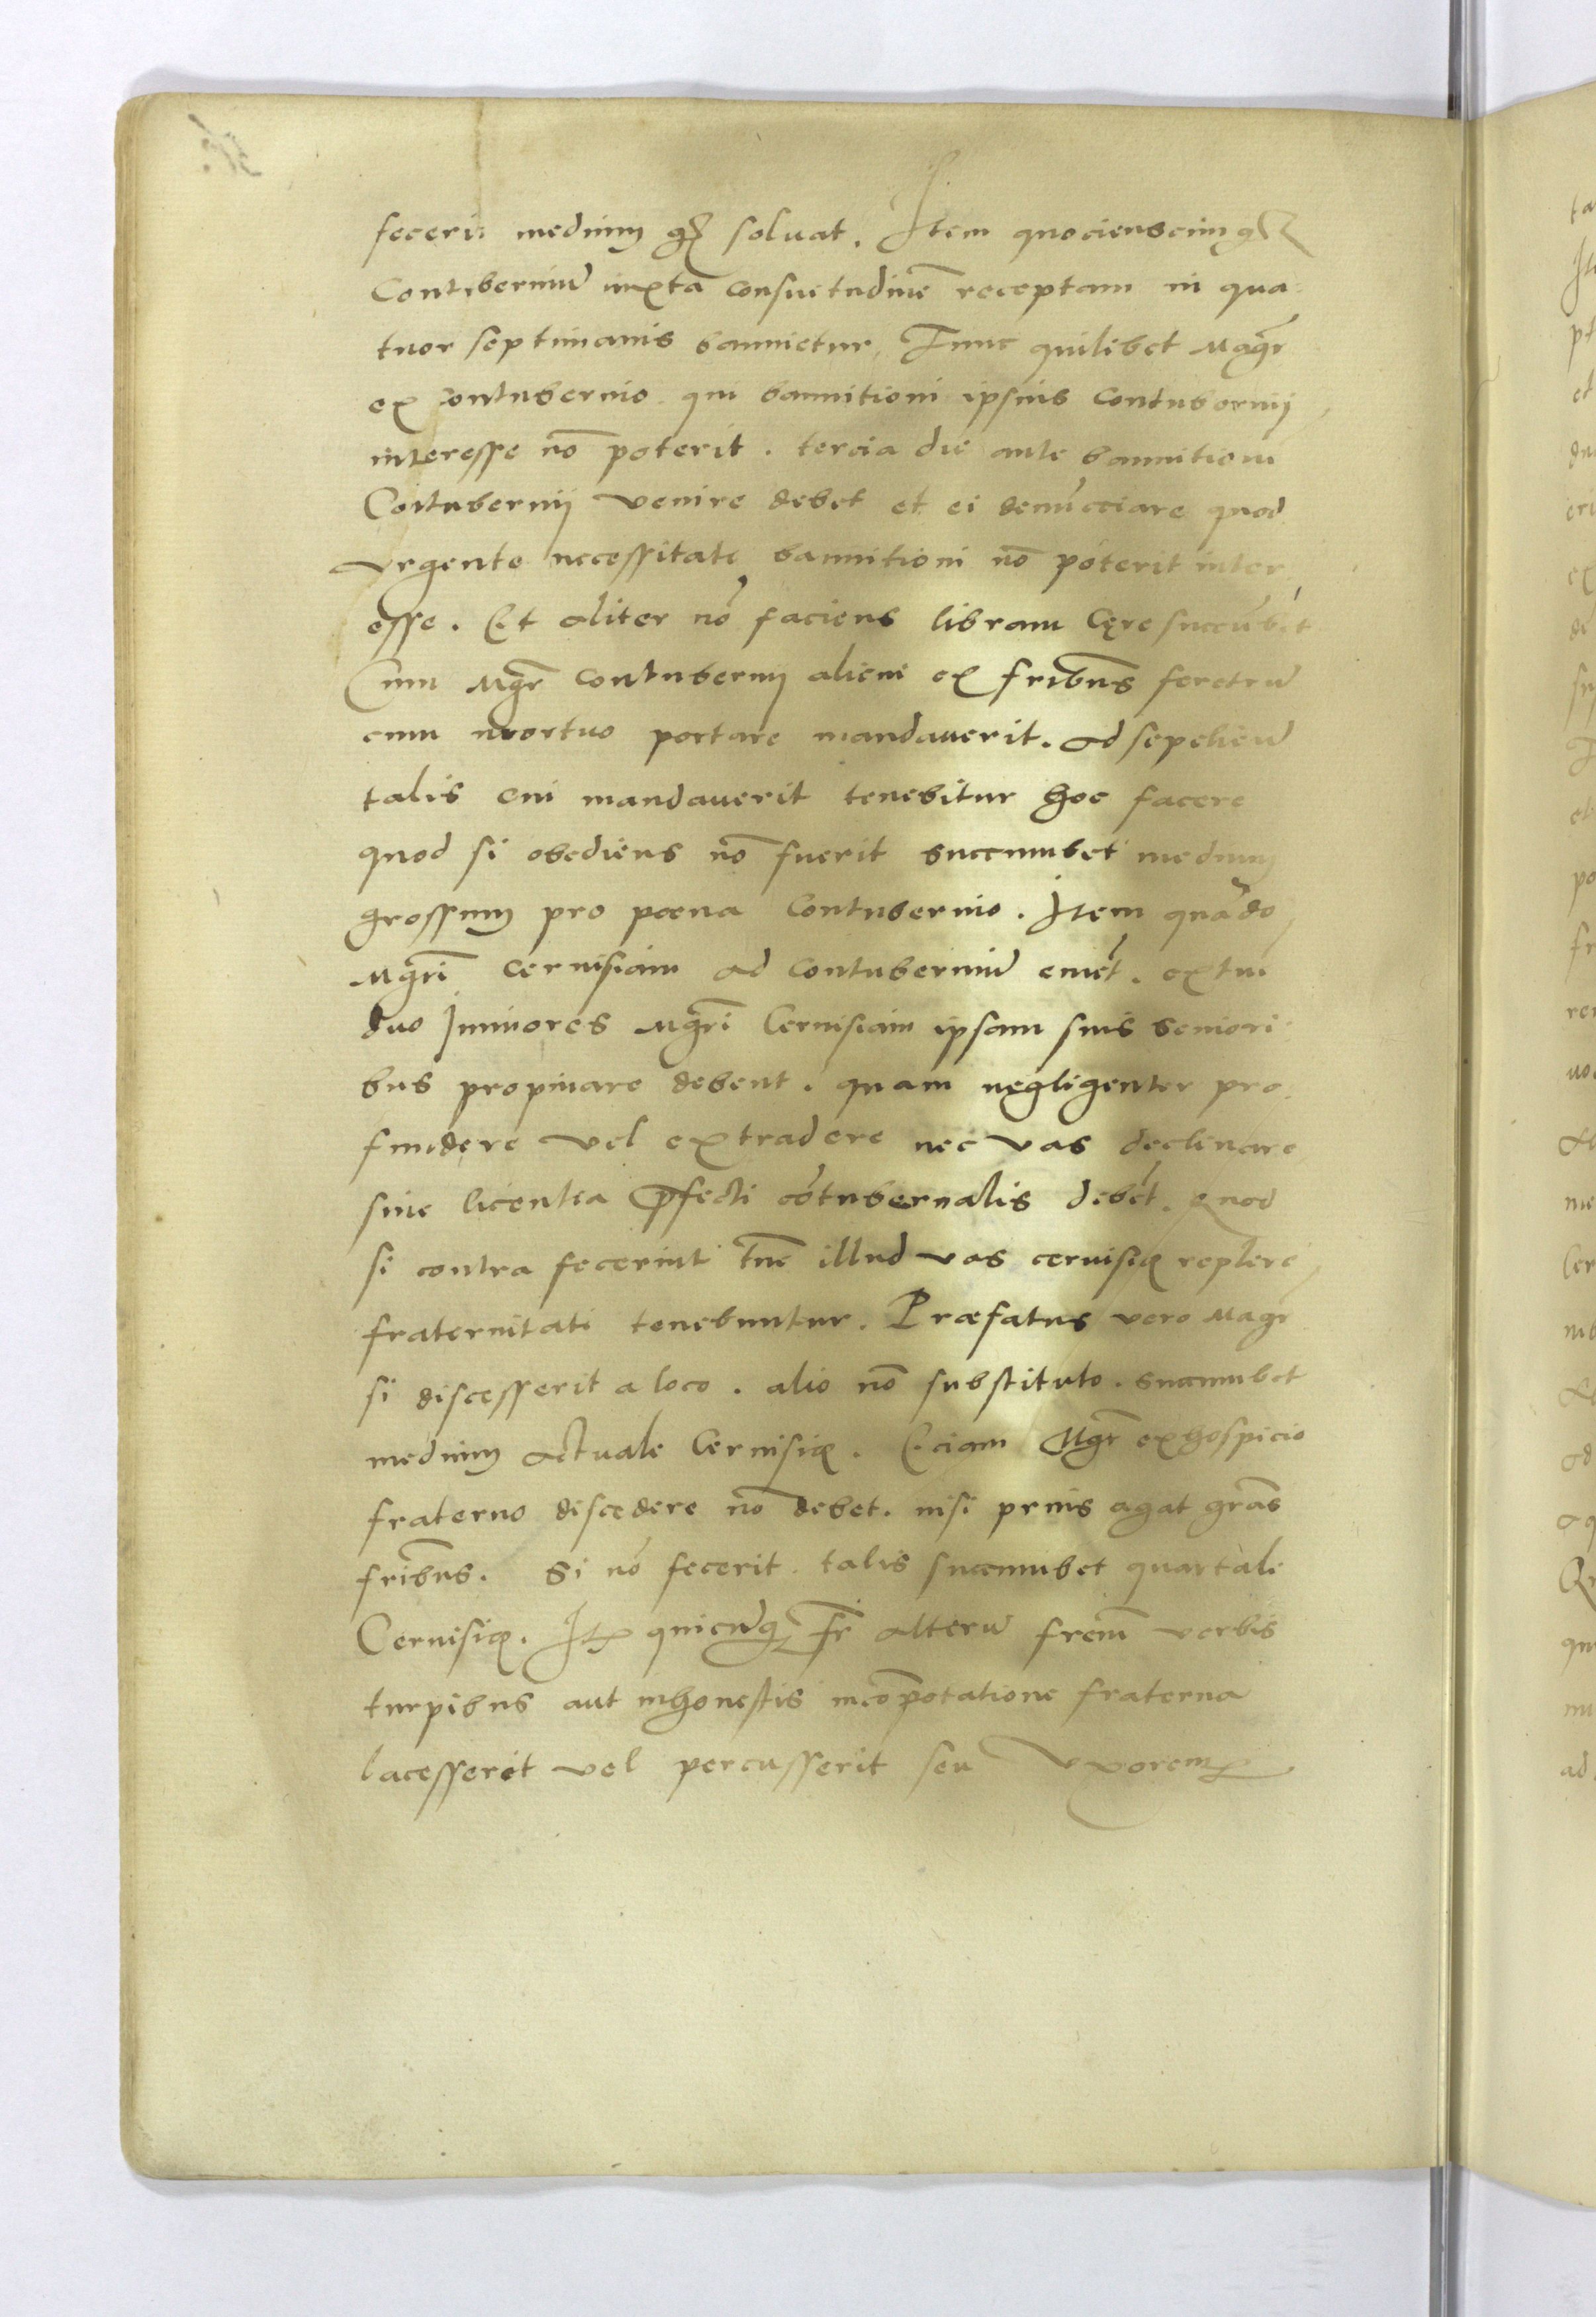 feceri medium gꝝ soluat. Item quocienscunqꝫ
Contuberniū iuxta consuetudinē receptam in qua
tuor septimanis bannietur, Tunc quilibet Magr̄
ex contubernio qui bannitioni ipsius contubernij
interesse nō poterit. tercia die ante bannitionē
Cōtubernij venire debet et ei denūcciare quod
vrgente necessitate bannitioni nō poterit inter
esse. Et aliter nō faciens libram cęre succūbit
Cum Mgr̄ contubernij alicui ex fribus̄ feretrū
cum mortuo portare mandauerit. ad sepeliēd
talis cui mandauerit tenebitur hoc facere
quod si obediens nō fuerit succumbet medium
grossum pro poena contubernio. Item quādo
Mgrī ceruisiam ad contuberniū emēt. extūc
duo Juniores Mgrī Ceruisiam ipsam suis seniori
bus propinare debent. quam negligenter pro
fundere vel extradere nec vas declinare
sine licentia p̄fecti cōtubernalis debēt. Quod
si contra fecerint tūc illud vas ceruisię replere
fraternitati tenebuntur. Præfatus vero Magr̄
si discesserit a loco. alio nō substituto. succumbet
medium actuale Ceruisię. Eciam Mgr̄ ex hospicio
fraterno discedere nō debet. nisi prius agat grās
fribus̄. Si nō fecerit talis succumbet quartale
Ceruisię. Itꝫ quicūqꝫ fr̄ alterū frem̄ verbis
turpibus aut inhonestis in cōpotatione fraterna
lacesserit vel percusserit seu vxorem